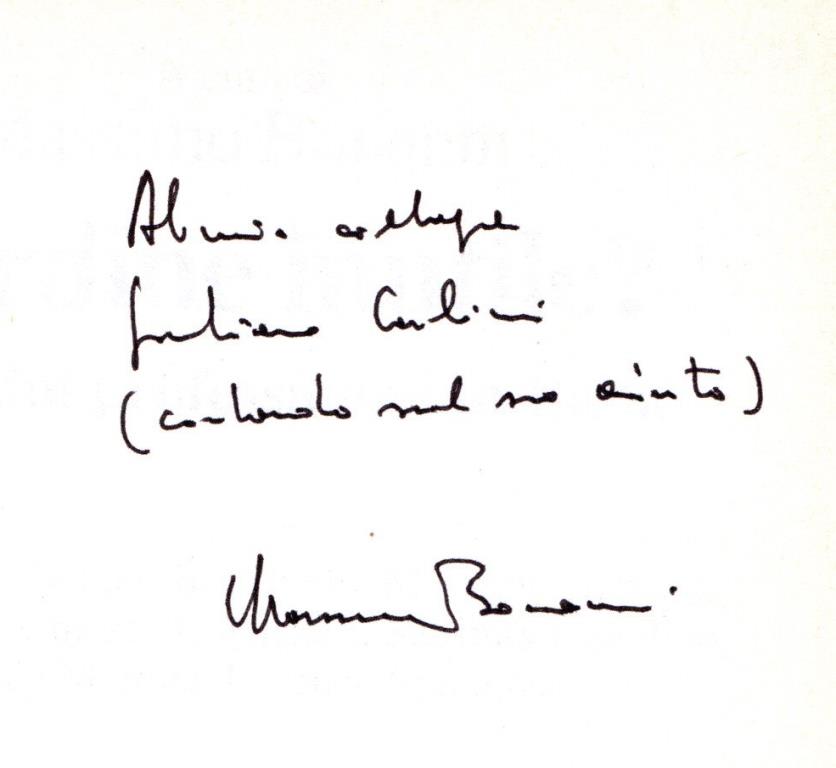 Al mio collega
Giuliano Carlini
(contando sul suo aiuto)
Massimo Bonanni